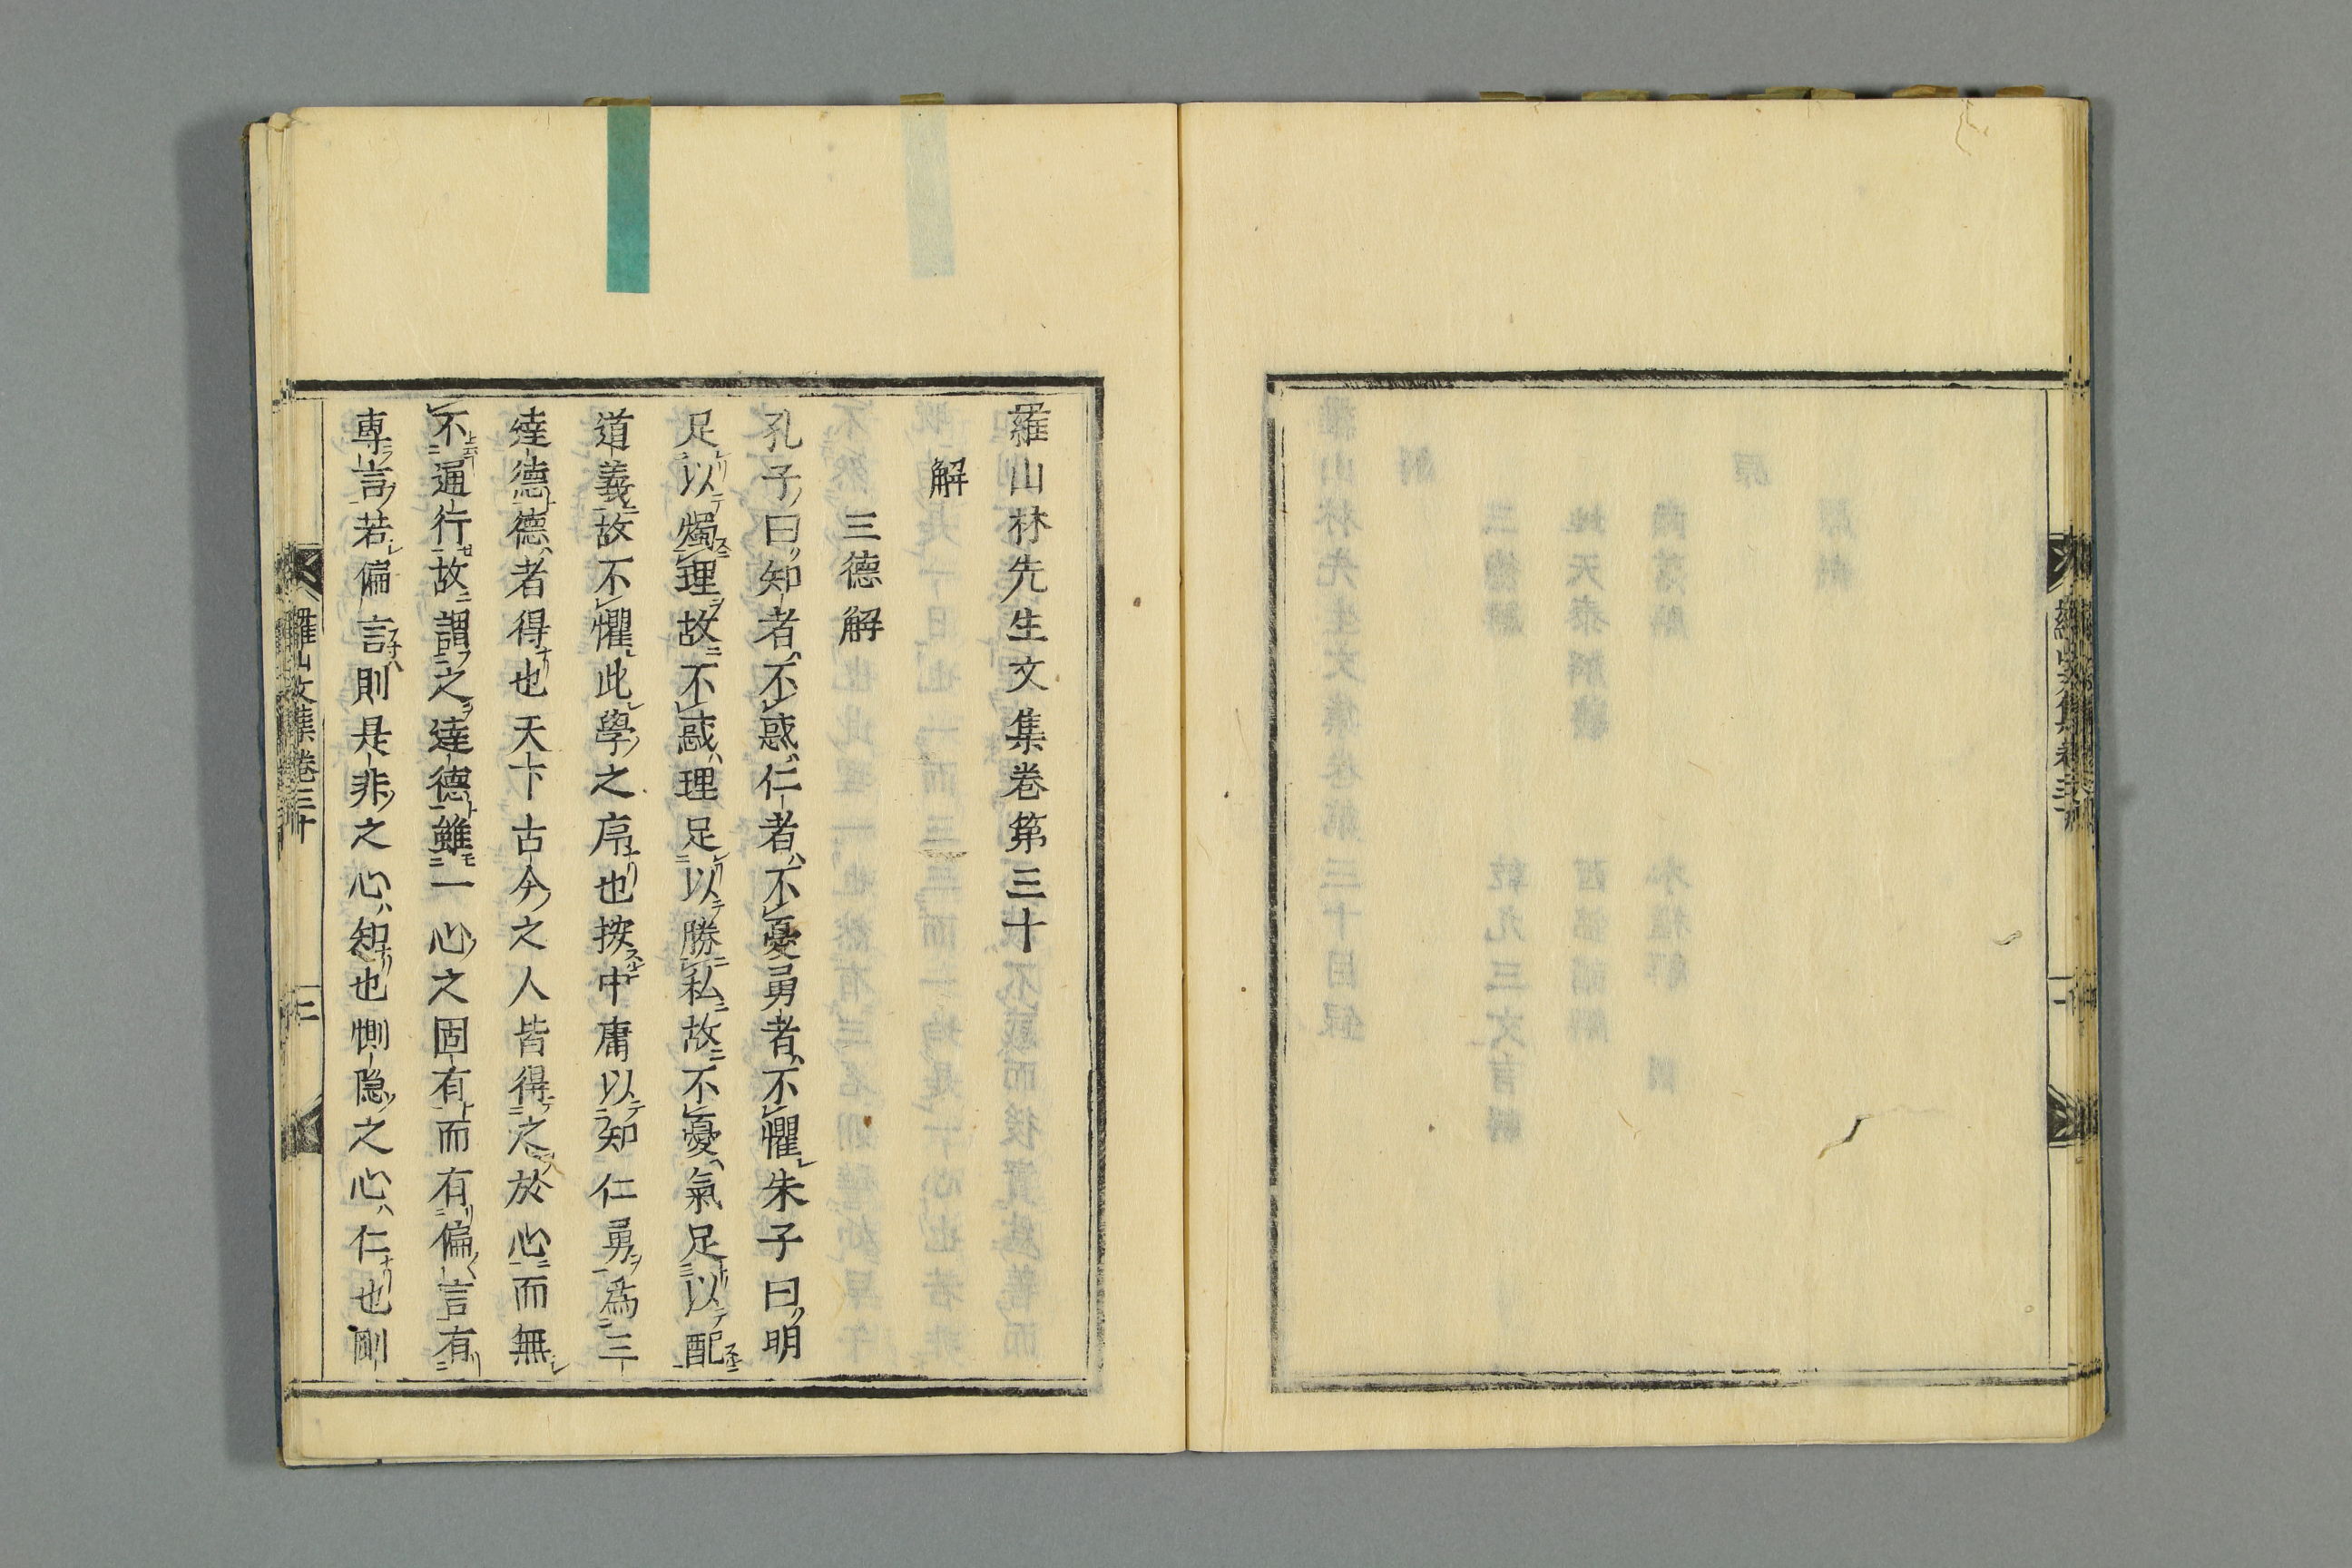 羅山林先生文集卷第三十
解
三德解
孔子曰知者不惑仁者不憂勇者不懼朱子曰明
足以燭理故不惑理足以勝私故不憂氣足以配
道義故不懼此學之序也按中庸以知仁勇爲三
達德德者得也天下古今之人皆得之於心而無
不通行故謂之達德雖一心之固有而有偏言有
專言若偏言則是非之心知也惻隱之心仁也剛
羅山文集卷三十